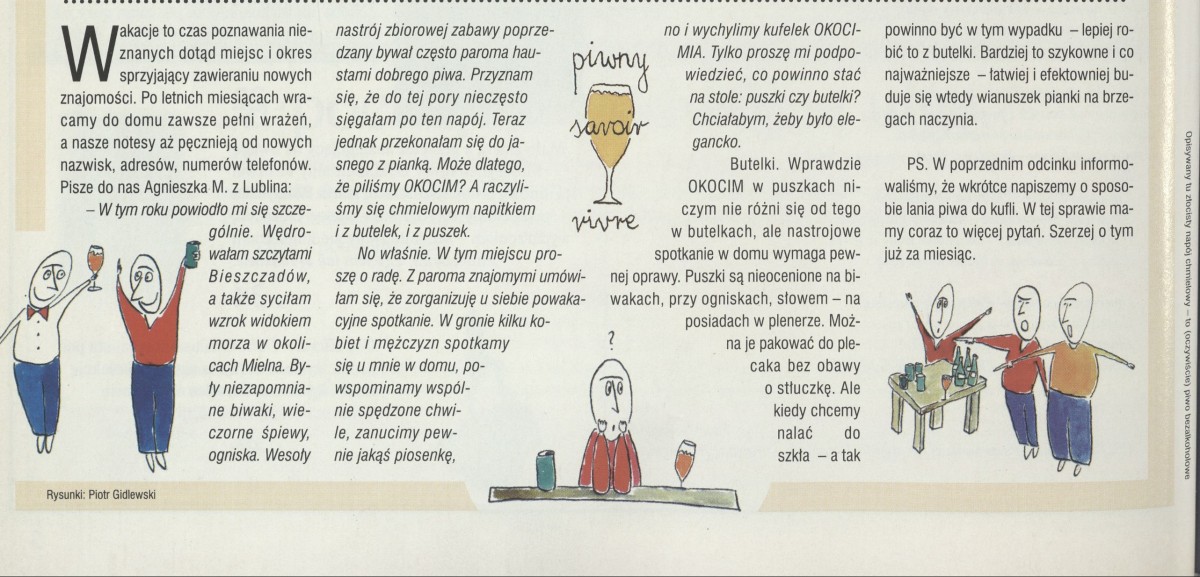 Wakacje to czas poznawania nie-
znanych dotąd miejsc i okres
sprzyjający zawieraniu nowych
znajomości. Po letnich miesiącach wra-
camy do domu zawsze pełni wrażeń,
a nasze notesy aż pęcznieją od nowych
nazwisk, adresów, numerów telefonów.
Pisze do nas Agnieszka M. z Lublina:
– W tym roku powiodło mi się szcze-
gólnie. Wędro-
wałam szczytami
Bieszczadów,
a także syciłam
wzrok widokiem
morza w okoli-
cach Mielna. By-
ły niezapomnia-
ne biwaki, wie-
czorne śpiewy,
ogniska. Wesoły
nastrój zbiorowej zabawy poprze-
dzany bywał często paroma hau-
stami dobrego piwa. Przyznam
się, że do tej pory nieczęsto
sięgałam po ten napój. Teraz
jednak przekonałam się do ja-
snego z pianką. Może dlatego,
że piliśmy OKOCIM? A raczyli-
śmy się chmielowym napitkiem
i z butelek, i z puszek.
No właśnie. W tym miejscu pro-
szę o radę. Z paroma znajomymi umówi-
łam się, że zorganizuję u siebie powaka-
cyjne spotkanie. W gronie kilku ko-
biet i mężczyzn spotkamy
się u mnie w domu, po-
wspominamy wspól-
nie spędzone chwi-
le, zanucimy pew-
nie jakąś piosenkę,
piwny
savoir
vivre
?
no i wychylimy kufelek OKOCI-
MIA. Tylko proszę mi podpo-
wiedzieć, co powinno stać
na stole: puszki czy butelki?
Chciałabym, żeby było ele-
gancko.
Butelki. Wprawdzie
OKOCIM w puszkach ni-
czym nie różni się od tego
w butelkach, ale nastrojowe
spotkanie w domu wymaga pew-
nej oprawy. Puszki są nieocenione na bi-
wakach, przy ogniskach, słowem – na
posiadach w plenerze. Moż-
na je pakować do ple-
caka bez obawy
o stłuczkę. Ale
kiedy chcemy
nalać do
szkła – a tak
powinno być w tym wypadku – lepiej ro-
bić to z butelki. Bardziej to szykowne i co
najważniejsze – łatwiej i efektowniej bu-
duje się wtedy wianuszek pianki na brze-
gach naczynia.
PS. W poprzednim odcinku informo-
waliśmy, że wkrótce napiszemy o sposo-
bie lania piwa do kufli. W tej sprawie ma-
my coraz to więcej pytań. Szerzej o tym
już za miesiąc.
Rysunki: Piotr Gidlewski
Opisywany tu złocisty napój chmielowy – to (oczywiście) piwo bezalkoholowe